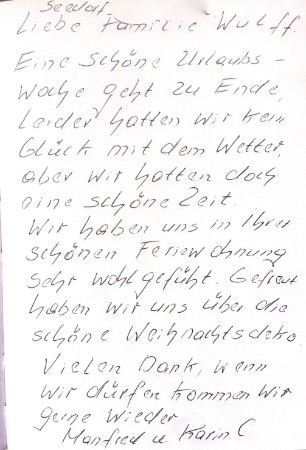 Seedorf
Liebe Familie Wulff
Eine schöne Urlaubs -
woche geht zu Ende,
Leider hatten wir kein
Glück mit dem Wetter,
aber wir hatten doch
eine schöne Zeit.
Wir haben uns in Ihrer
schönen Ferienwohnung
sehr wohl gefühlt. Gefreut
haben wir uns über die
schöne Weihnachtsdeko.
Vielen Dank, wenn
wir dürfen kommen wir
gerne wieder
Manfred u. Karin C